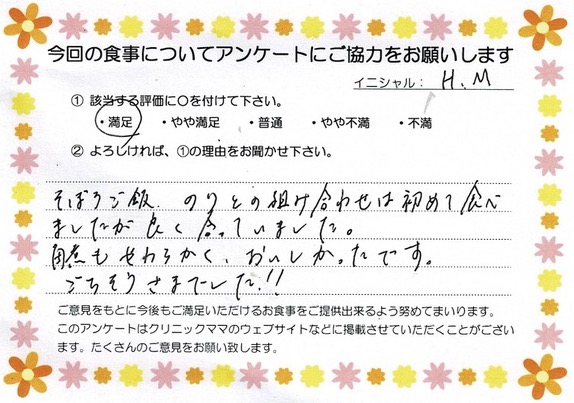 今回の食事についてアンケートにご協力をお願いします
イニシャル： H.M
① 該当する評価に○を付けて下さい。
・満足 ・やや満足 ・普通 ・やや不満 ・不満
② よろしければ、①の理由をお聞かせ下さい。
そぼろご飯、のりとの組み合わせは初めて食べ
ましたが良く合っていました。
角煮もやわらかく、おいしかったです。
ごちそうさまでした!!
ご意見をもとに今後もご満足いただけるお食事をご提供出来るよう努めてまいります。
このアンケートはクリニックママのウェブサイトなどに掲載させていただくことがござい
ます。たくさんのご意見をお願い致します。